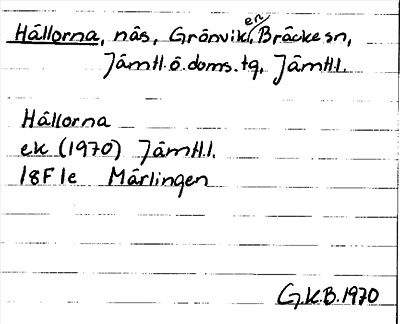 Hållorna, näs, Grönviken, Bräcke sn,
Jämtl. ö. doms. tg, Jämtl.l.
Hållorna
ek (1970) Jämtl.l.
18F 1e Mårlingen
G.K.B. 1970